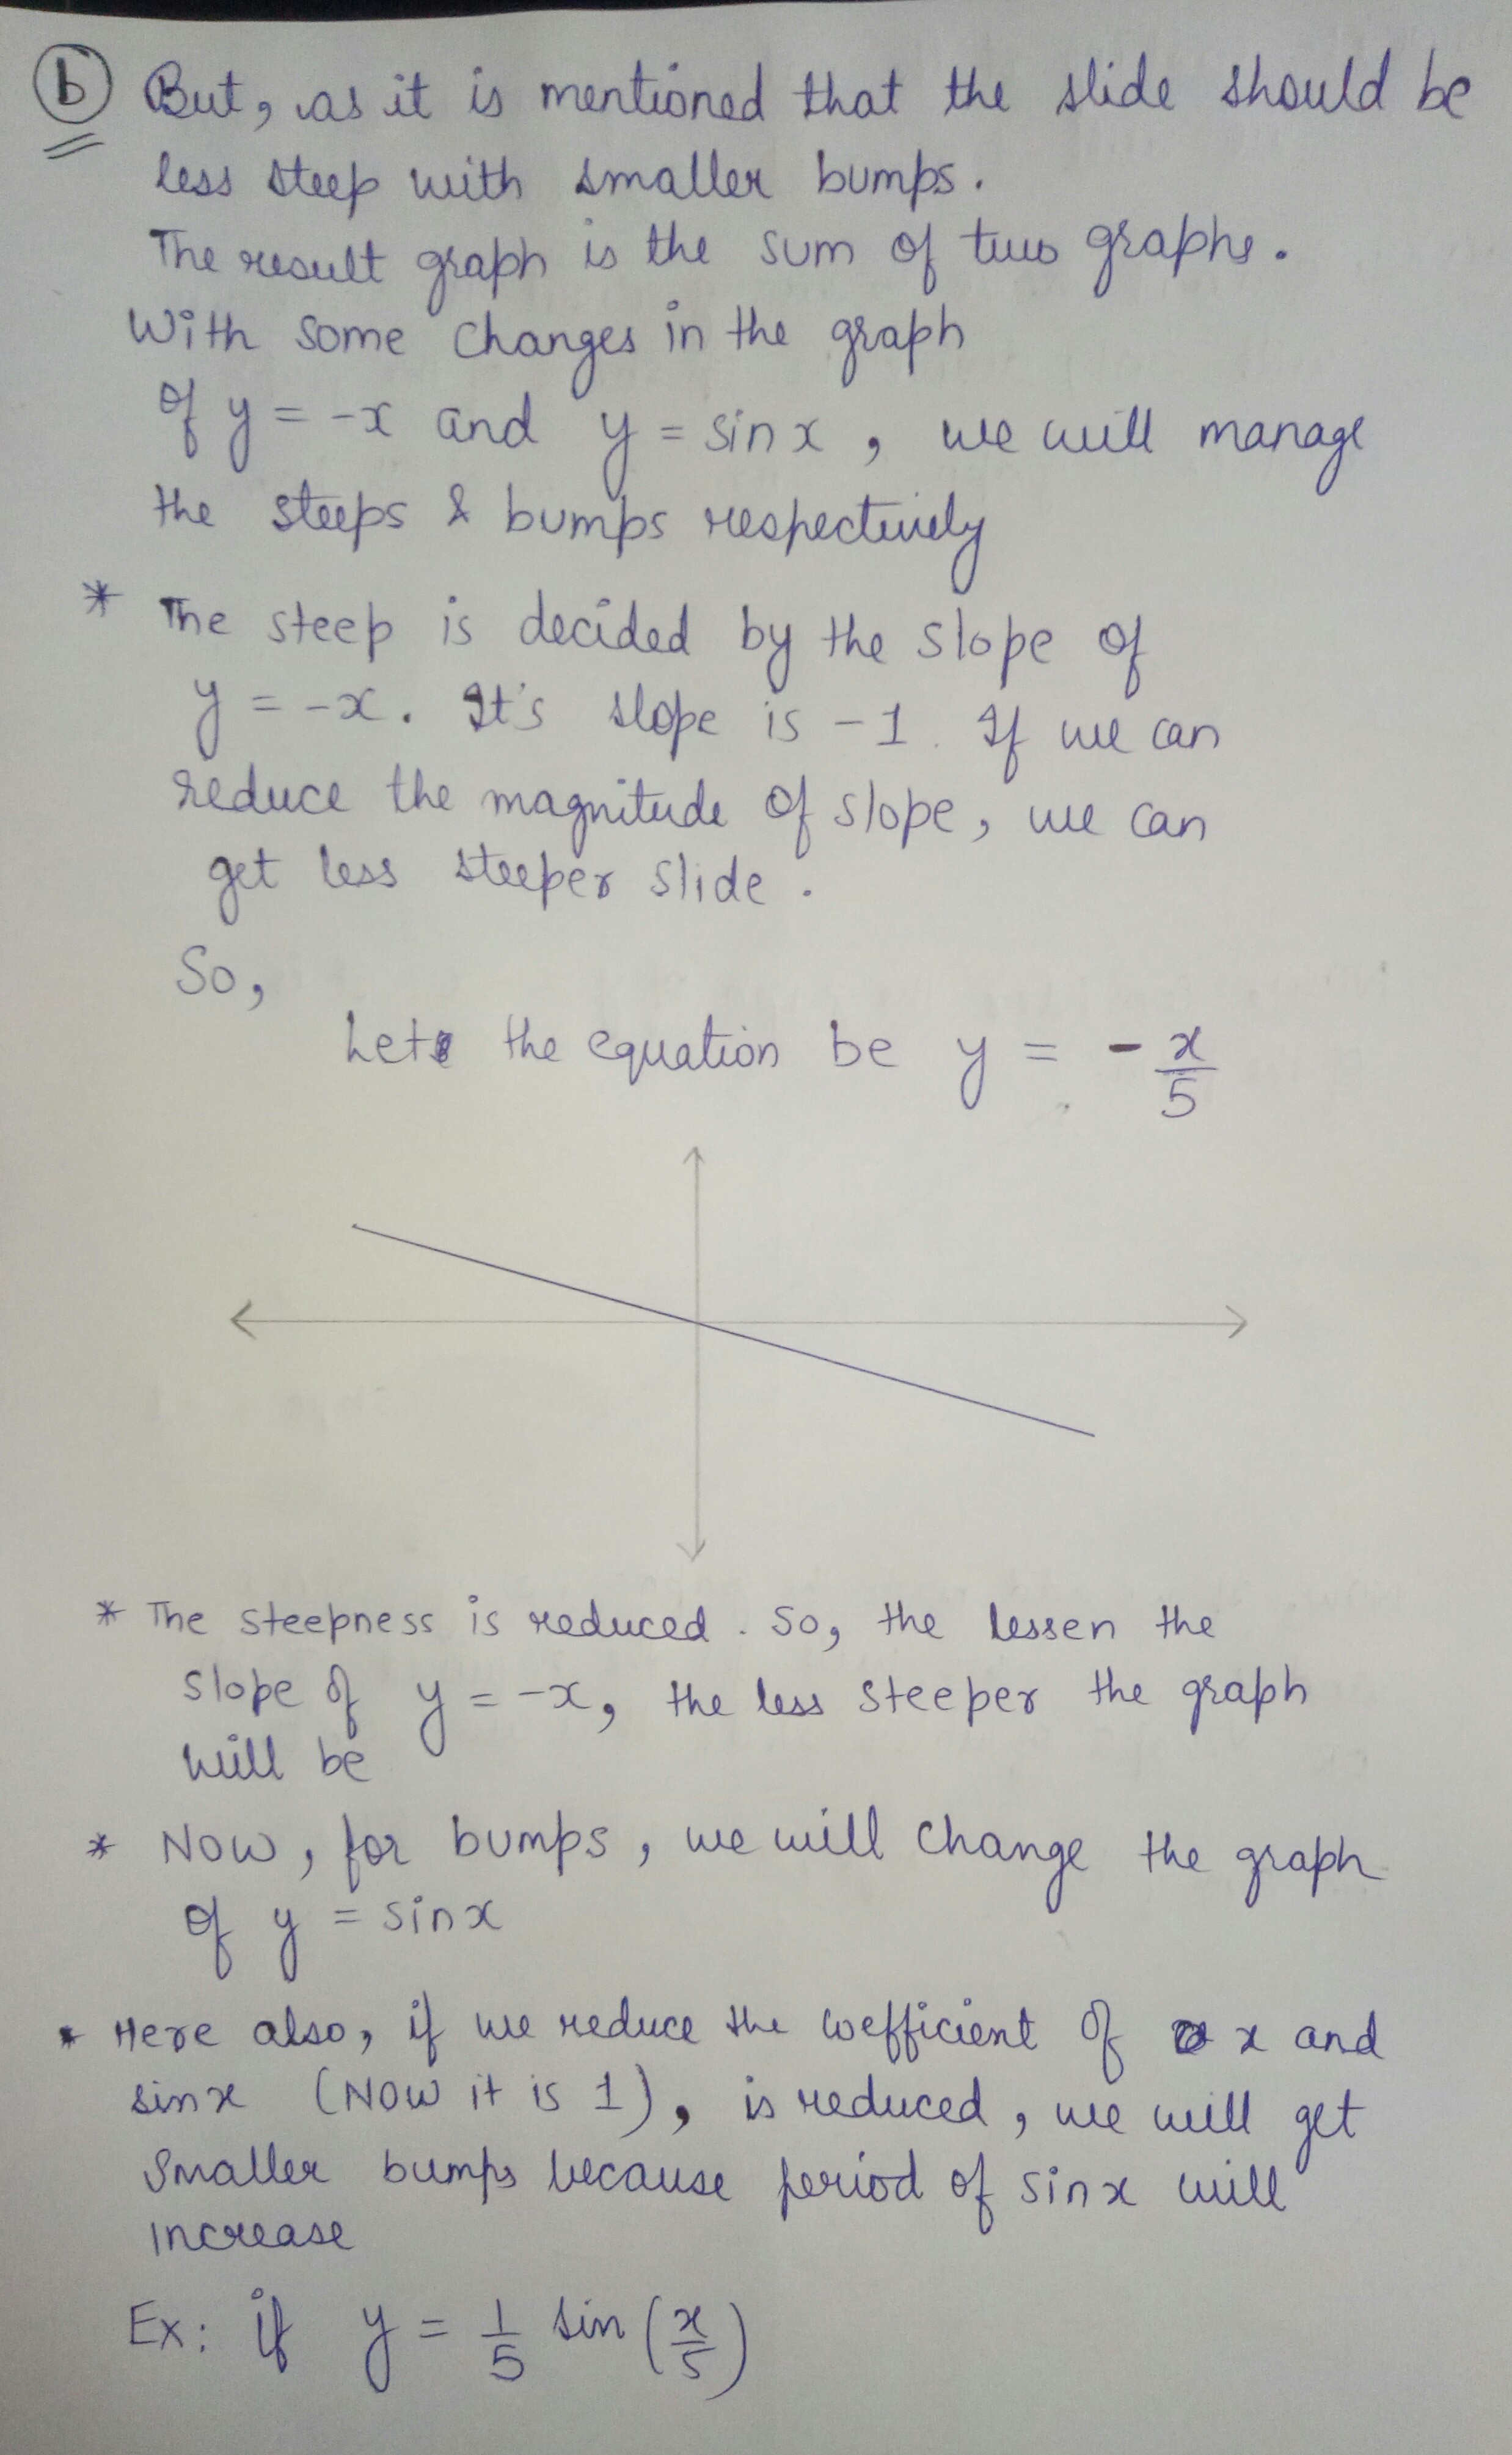 b But, as it is mentioned that the slide should be
less steep with smaller bumps.
The result graph is the sum of two graphs.
With some changes in the graph
of y = -x and y = sin x, we will manage
the steeps & bumps respectively
* The steep is decided by the slope of
y = -x. It's slope is -1. If we can
reduce the magnitude of slope, we can
get less steeper slide.
So,
Let the equation be y = - x/5
* The steepness is reduced. So, the lessen the
slope of y = -x, the less steeper the graph
will be
* Now, for bumps, we will change the graph
of y = sinx
* Here also, if we reduce the coefficient of x and
sinx (Now it is 1), is reduced, we will get
smaller bumps because period of sinx will
increase
Ex: if y = 1/5 sin (x/5)